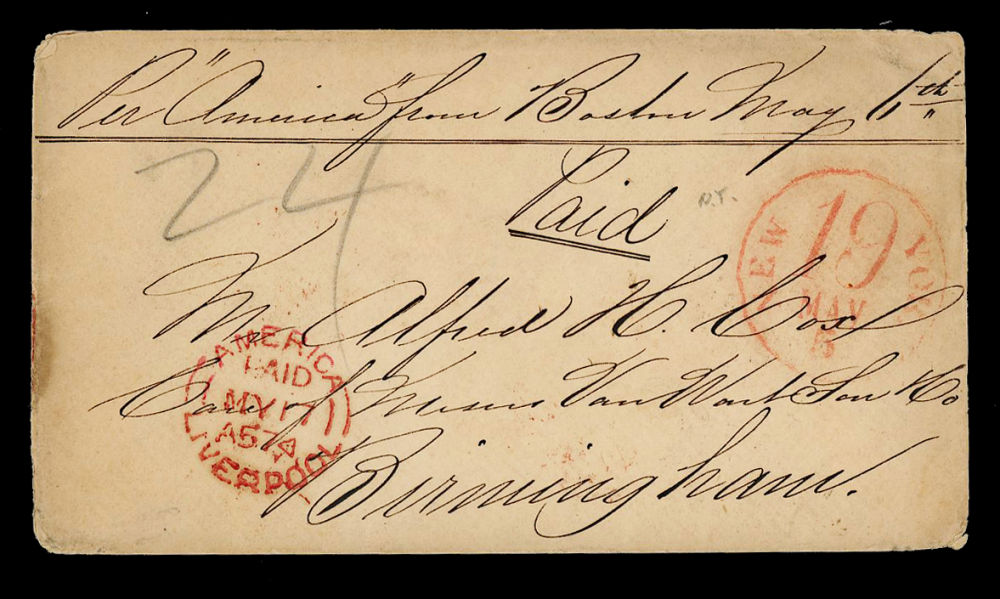 Per "America" from Boston May 6th
24
Paid
N.Y.
NEW YORK
19
MAY
5
Mr. Alfred H. Cox
Care of Messrs Van Wart Son & Co
Birmingham.
AMERICA
PAID
MY 17
A57A
LIVERPOOL